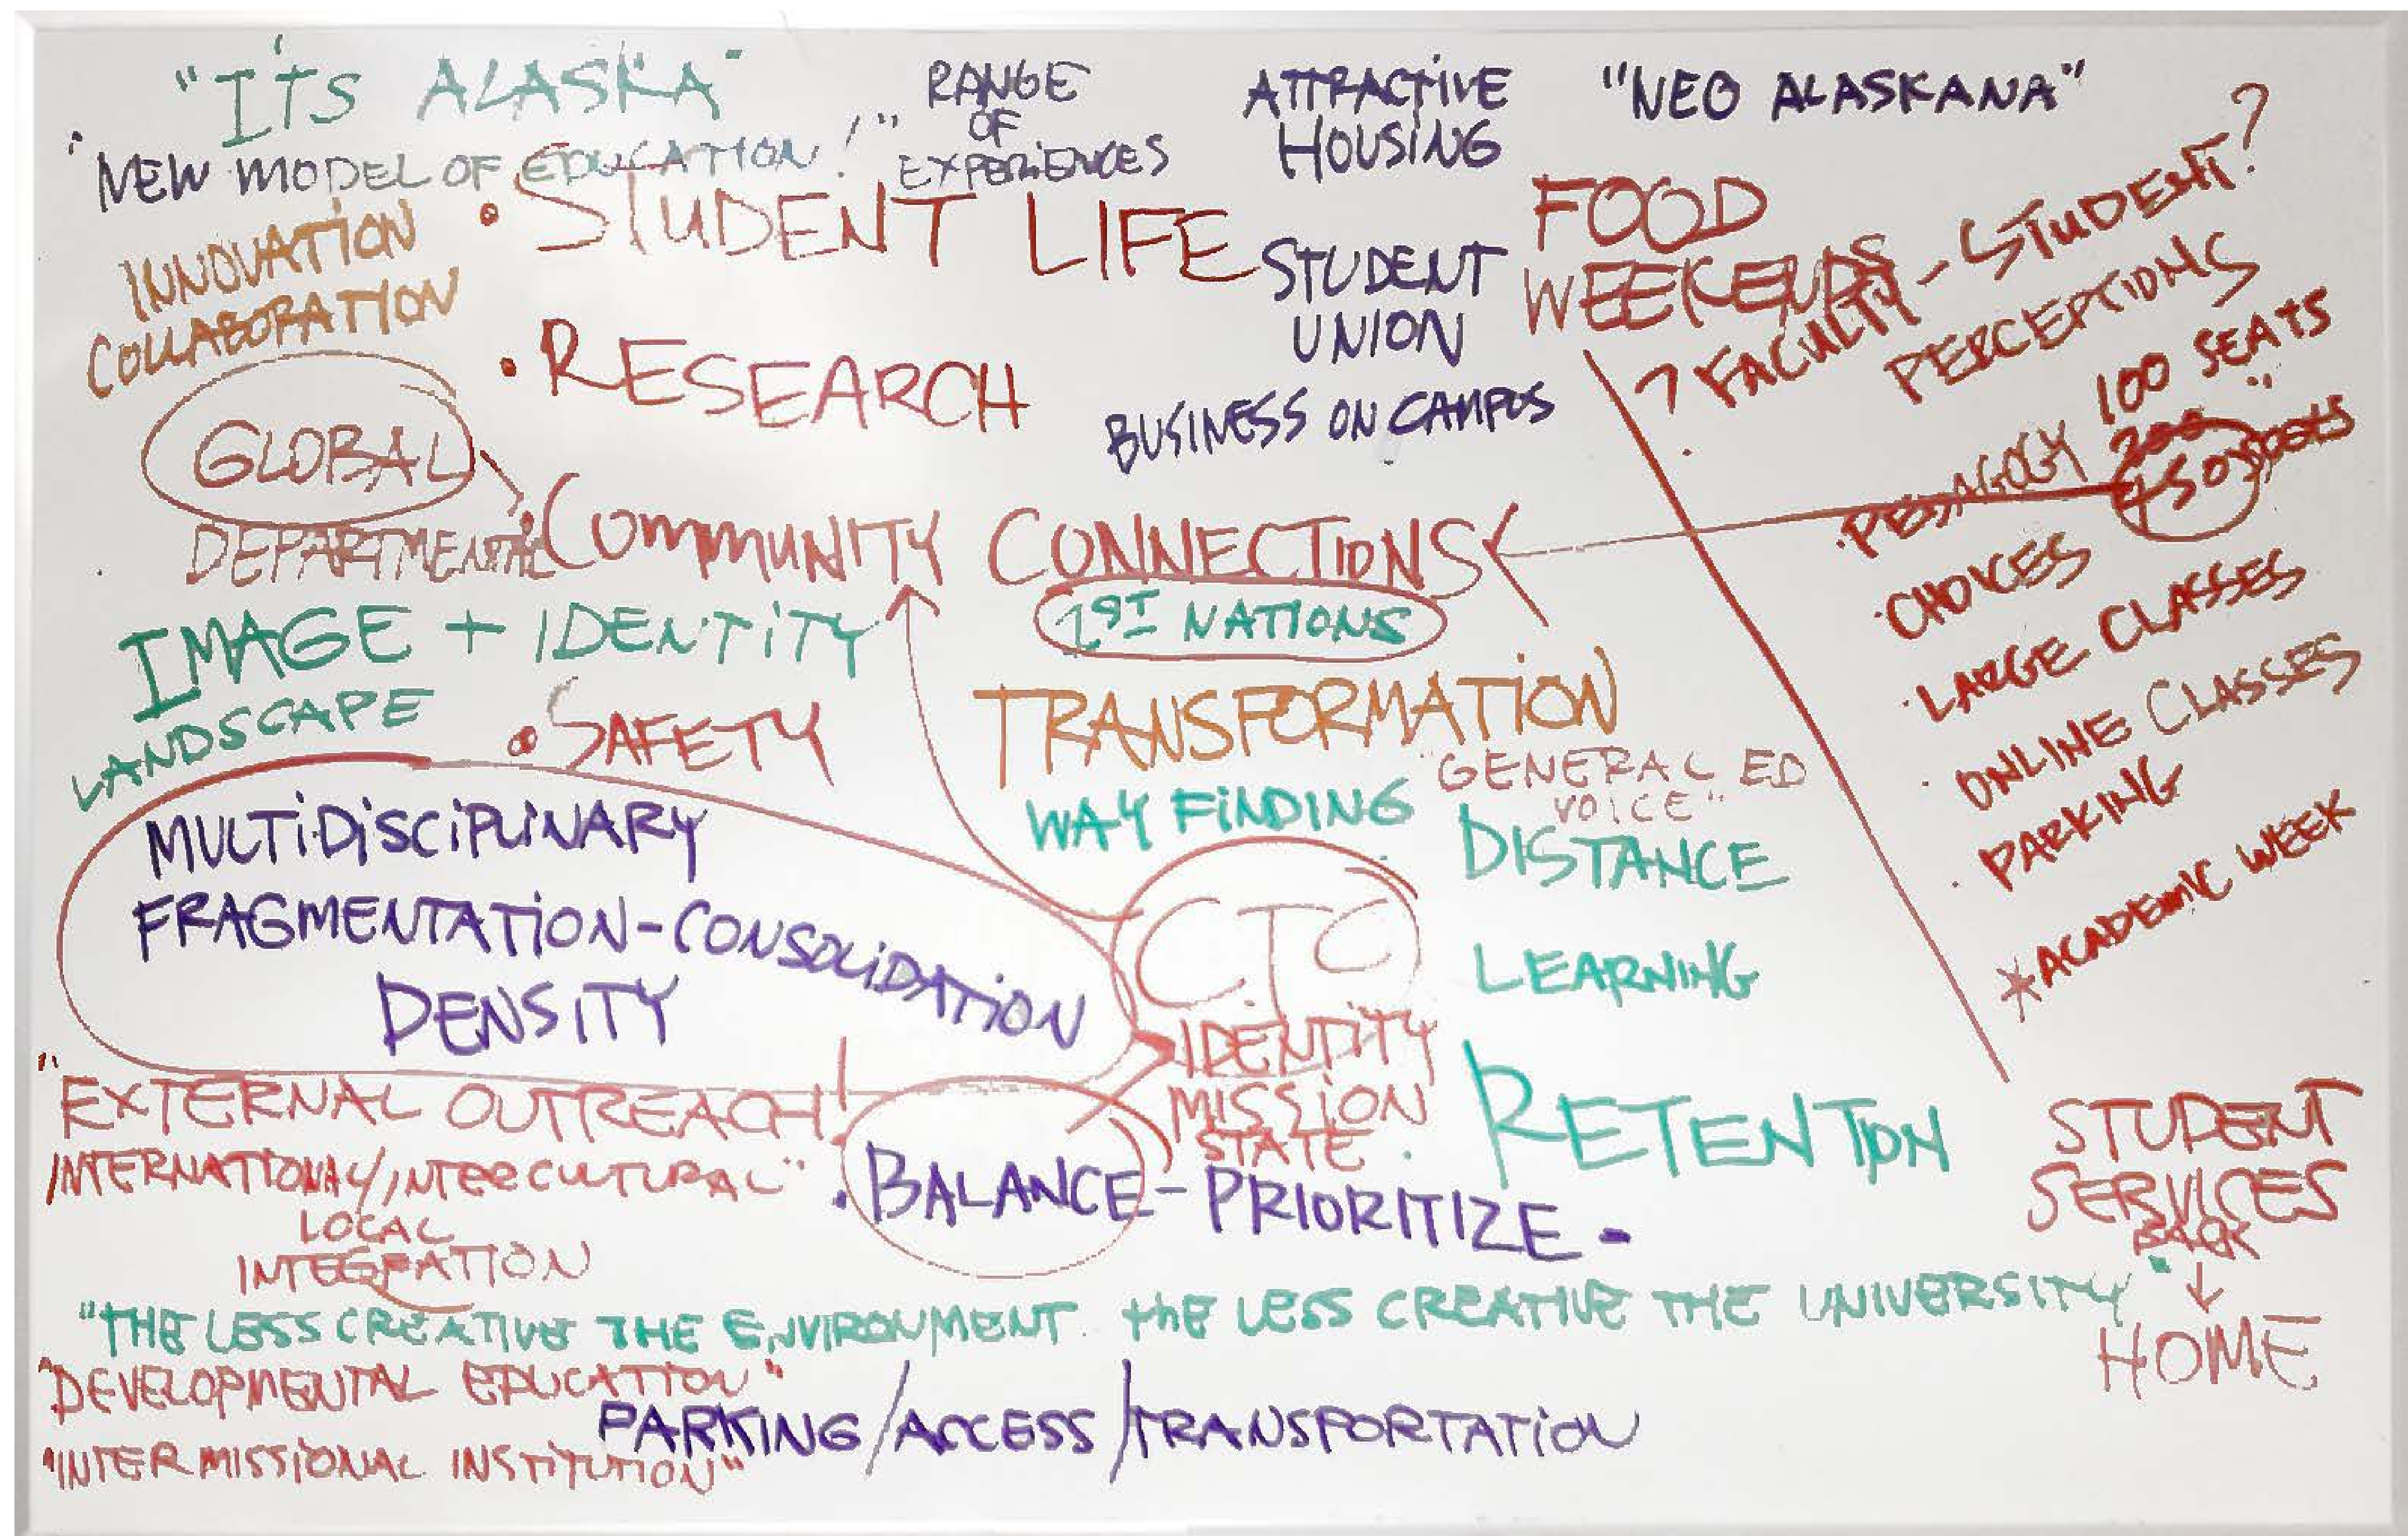 "ITS ALASKA"
"NEW MODEL OF EDUCATION!"
RANGE
OF
EXPERIENCES
ATTRACTIVE
HOUSING
"NEO ALASKANA"
INNOVATION
COLLABORATION
• STUDENT LIFE
STUDENT
UNION
FOOD
WEEKENDS
? FACULTY - STUDENT?
PERCEPTIONS
• RESEARCH
BUSINESS ON CAMPUS
GLOBAL
DEPARTMENTAL
• COMMUNITY CONNECTIONS
1ST NATIONS
• PEDAGOGY 100 SEATS
200
• CHOICES
• LARGE CLASSES
• ONLINE CLASSES
• PARKING
* ACADEMIC WEEK
IMAGE + IDENTITY
LANDSCAPE
• SAFETY
TRANSFORMATION
"GENERAL ED
VOICE"
WAY FINDING
DISTANCE
LEARNING
MULTIDISCIPLINARY
FRAGMENTATION-CONSOLIDATION
DENSITY
CTC
IDENTITY
MISSION
STATE
• RETENTION
"EXTERNAL OUTREACH!
INTERNATIONAL/INTERCULTURAL"
LOCAL
INTEGRATION
• BALANCE - PRIORITIZE -
STUDENT
SERVICES
BACK
↓
HOME
"THE LESS CREATIVE THE ENVIRONMENT. THE LESS CREATIVE THE UNIVERSITY"
"DEVELOPMENTAL EDUCATION"
PARKING/ACCESS/TRANSPORTATION
"INTERMISSIONAL INSTITUTION"